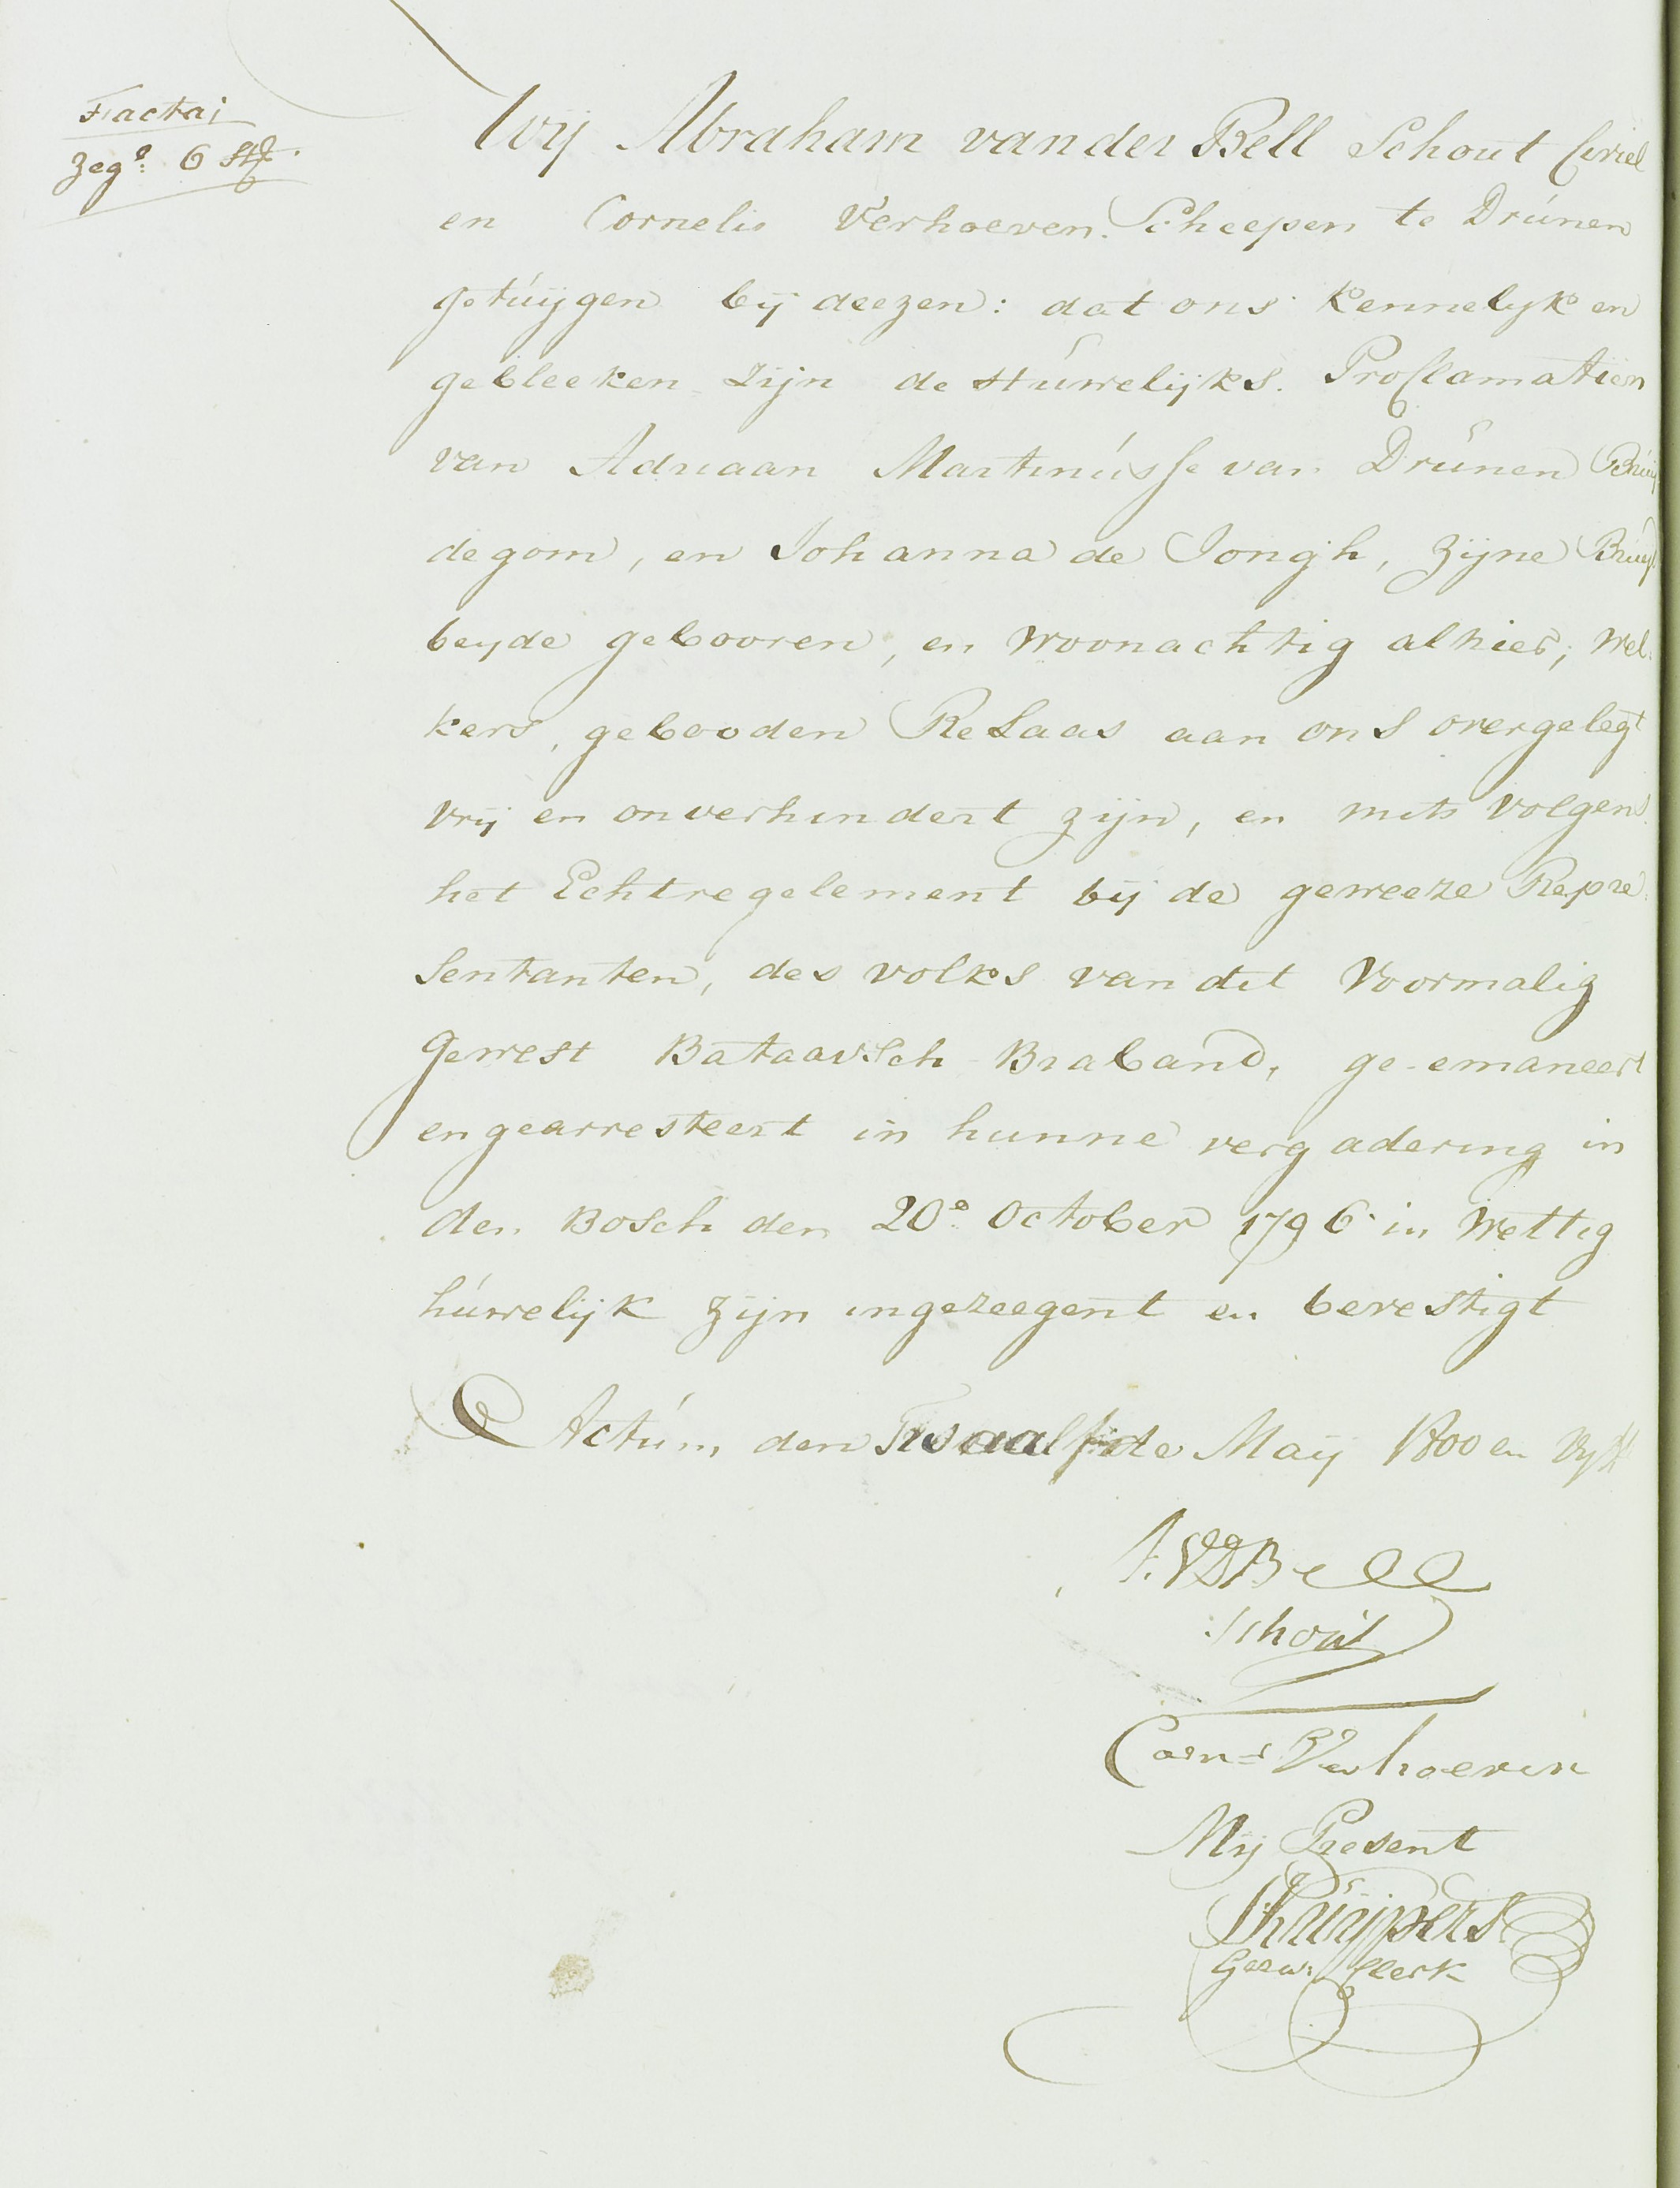 Facta;
Zegˢ 6 St:
Wij Abraham van der Bell Schout Civiel
en Cornelis Verhoeven Scheepen te Drúnen
getúijgen bij deezen: dat ons kennelyk en
gebleeken zijn de Húwelijks Proclamatien
van Adriaan Martinússe van Drúnen Brúij
degom, en Johanna de Jongh, zijne Brúijt
beyde gebooren, en Woonachtig alhier; Wel
kers, gebooden Relaas aan ons overgelegt
vrij en onverhindert zijn, en mits volgens
het Echtregelement bij de geweeze Repre
Sentanten, des volks van dit Voormalig
Gewest Bataavsch Braband, ge-emaneert
en gearresteert in hunne vergadering in
den Bosch den 20e October 1796 in Wettig
húwelijk zijn ingezeegent en bevestigt
Actúm den Twaalfde Maij 1800 en Vijff
A. VD Bell
Schout
Corns Verhoeven
Mij Present
Kúijpers
Gezw: Clerk